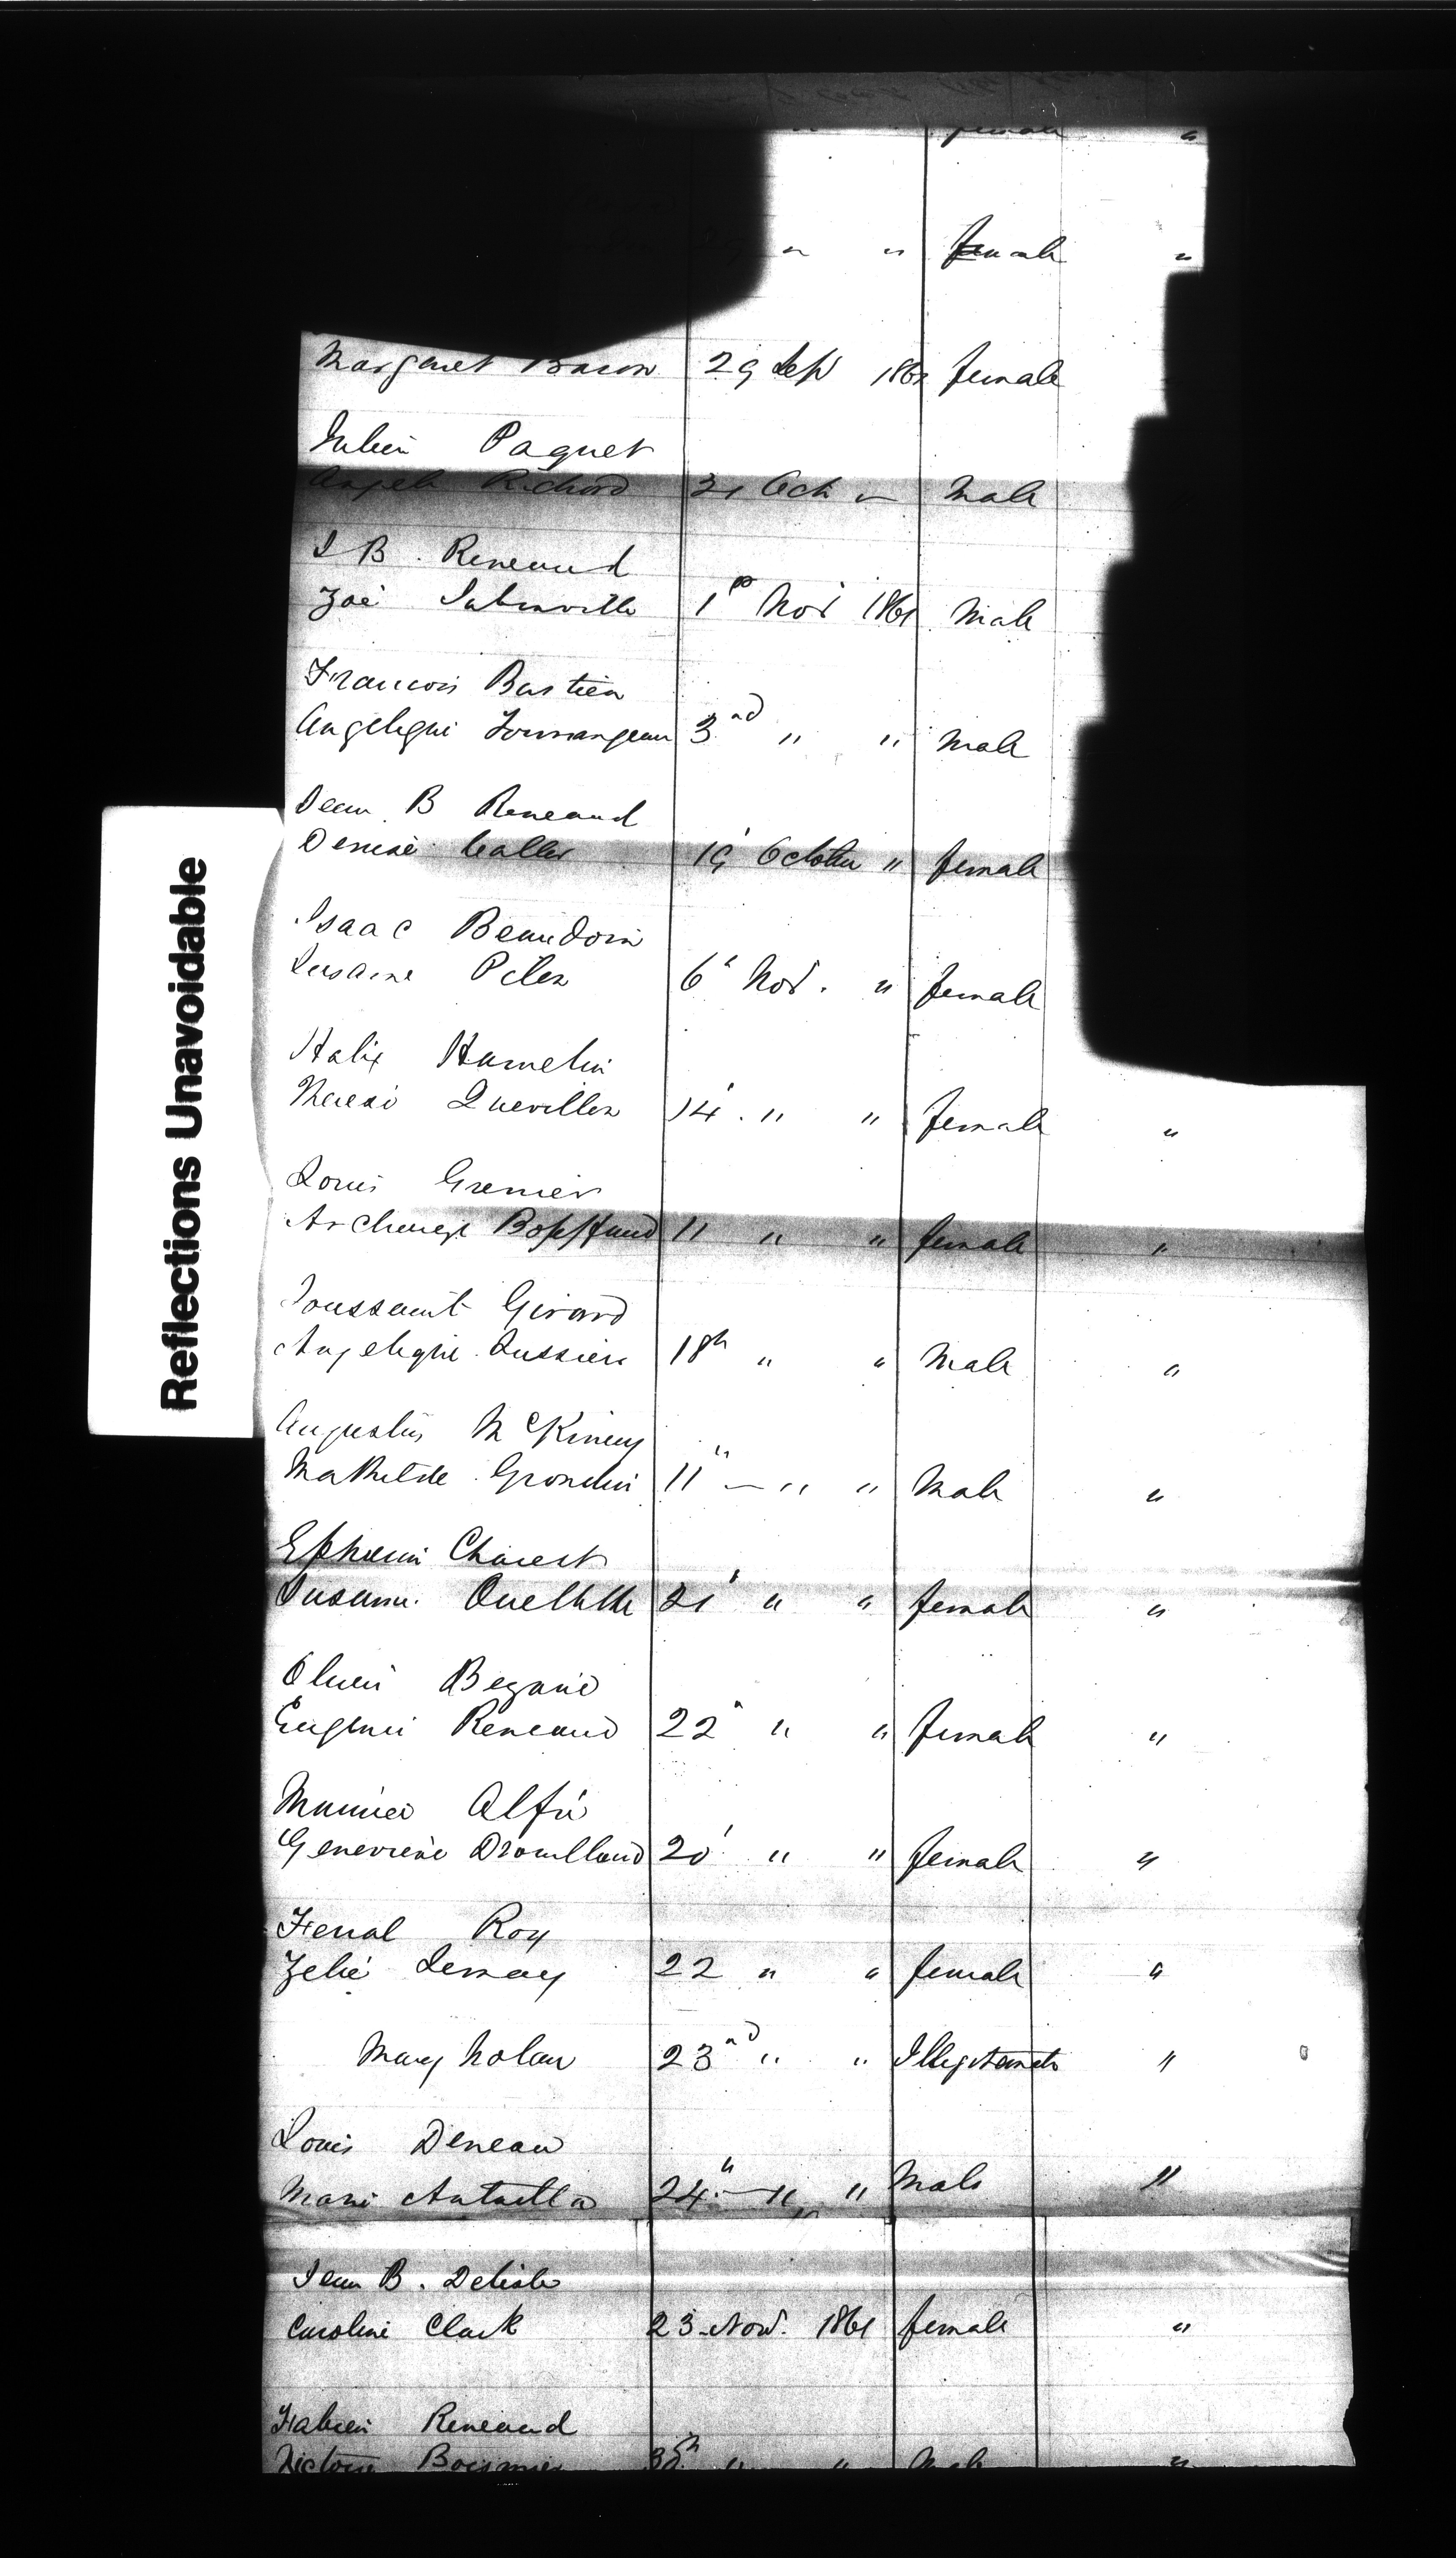 female "
" " female "
Margaret Baron 29 Sep 1861 female
Julien Paquet
Angele Richard 31 Oct " Male
J B. Reneaud
Zoé 1st Nov 1861 Male
Francois Bastien
Angelique 3rd " " Male
Jean B Reneaud
Denise 19 October " female
Isaac Beaudoin
Susanne Pilon 6 Nov. " female
Halix Hamelin
Quevillon 14 " " female "
Louis Grenier
Archange 11 " " female "
Toussaint Girard
Angelique Lussier 18th " " Male "
Augustus McKinny
Mathilde Grondin 11th " " Male "
Ephrem Charest
Susanne Ouellette 21 " " female "
Oliver Begané
Eugenie Reneaud 22 " " female "
Alfré
Genevieve Drouillard 20 " " female "
Roy
Zelie Lemay 22 " " female "
Mary Nolan 23rd " " Illegitamate "
Louis Deneau
Marie 24 " " Male "
Jean B. Delisle
Caroline Clark 23 Nov. 1861 female "
Fabien Reneaud
Victoire " " Male "
Reflections Unavoidable